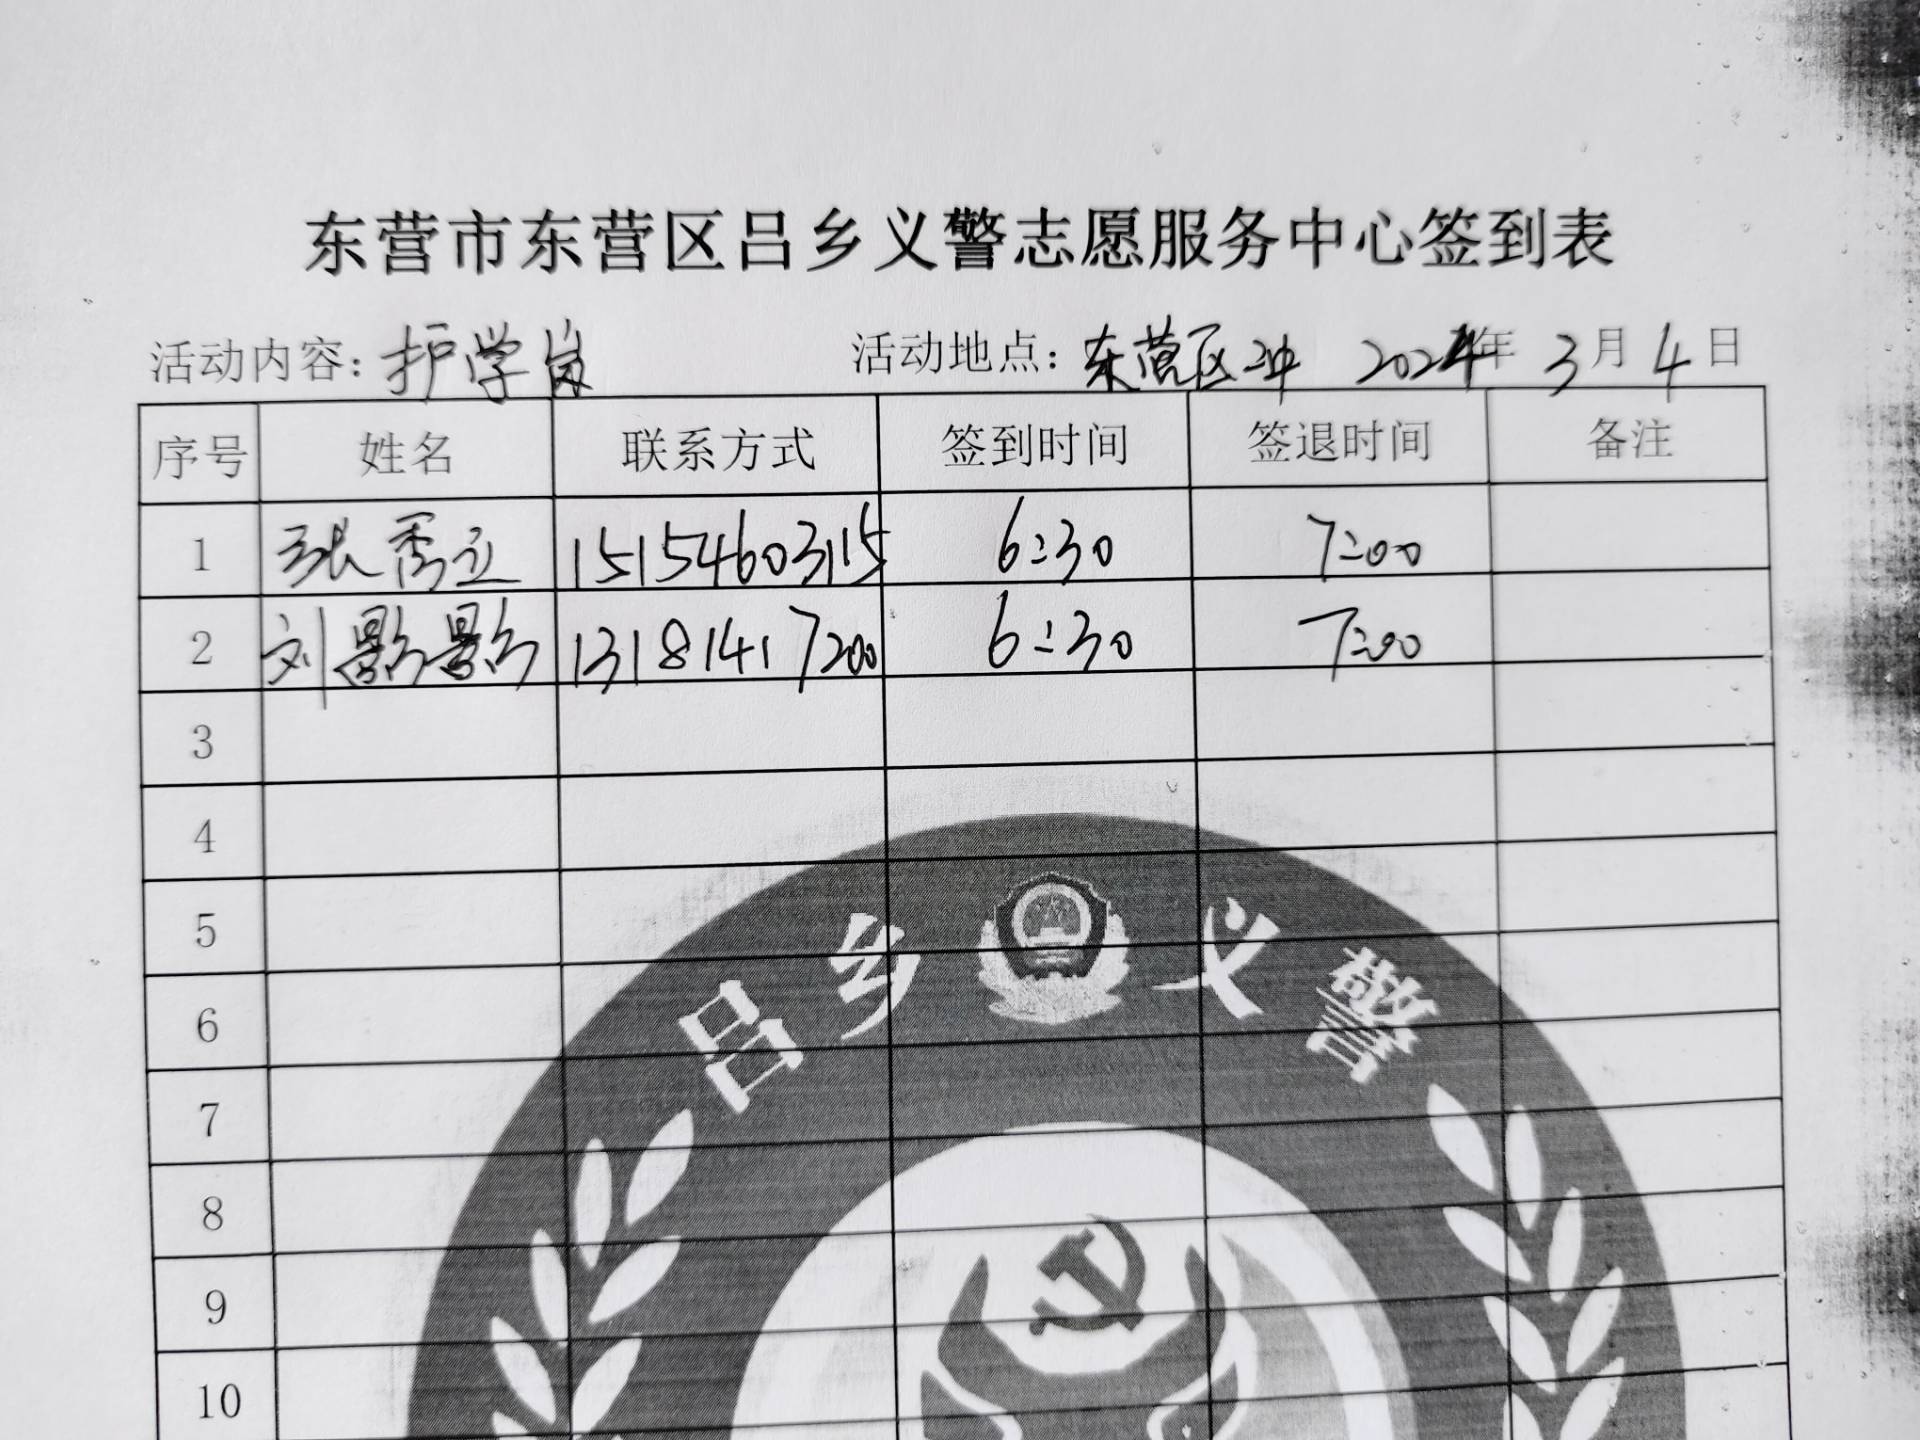 东营市东营区吕乡义警志愿服务中心签到表
活动内容：护学岗 活动地点：东营区二中 2024年3月4日
序号 姓名 联系方式 签到时间 签退时间 备注
1 张秀立 15154603115 6:30 7:00
2 刘影影 13181417200 6:30 7:00
3
4
5
6
7
8
9
10
吕乡义警